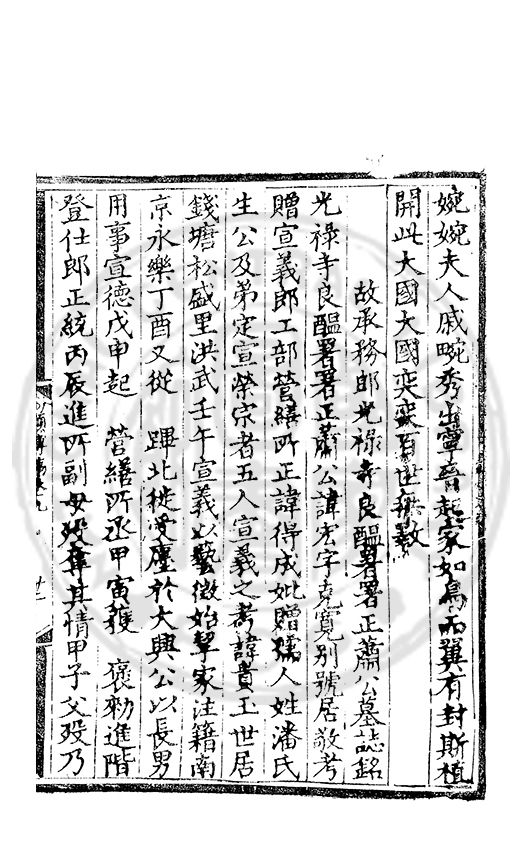 婉婉夫人戚畹秀出寧晉起家如鳥而翼有封斯植
開此大國大國奕奕百世無斁
故承務郎光禄寺良醞署署正蕭公墓誌銘
光禄寺良醞署署正蕭公諱宏字克寬别號居敬考
贈宣義郎工部營繕所正諱得成妣贈孺人姓潘氏
生公及弟定宣榮宗者五人宣義之考諱貴玉世居
錢塘松盛里洪武壬午宣義以藝徵始挈家注籍南
京永樂丁酉又從 蹕北徙受廛於大興公以長男
用事宣德戊申起 營繕所丞甲寅獲 褒勑進階
登仕郎正統丙辰進所副母殁奪其情甲子父殁乃